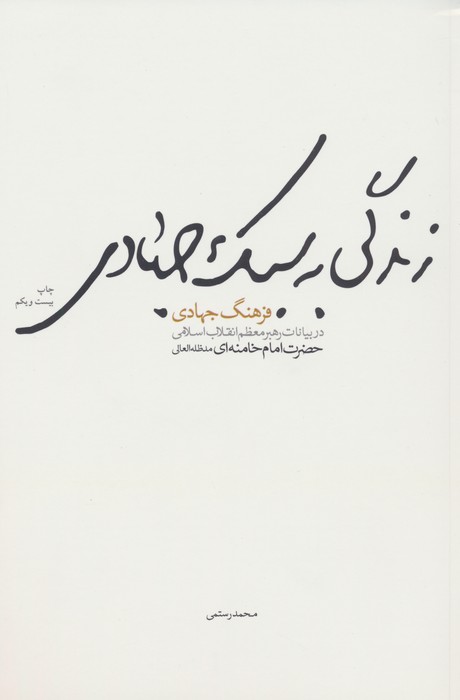 زندگی به سبک جهادی
چاپ
بیست و یکم
فرهنگ جهادی
در بیانات رهبر معظم انقلاب اسلامی
حضرت امام خامنه‌ای مدظله‌العالی
محمد رستمی